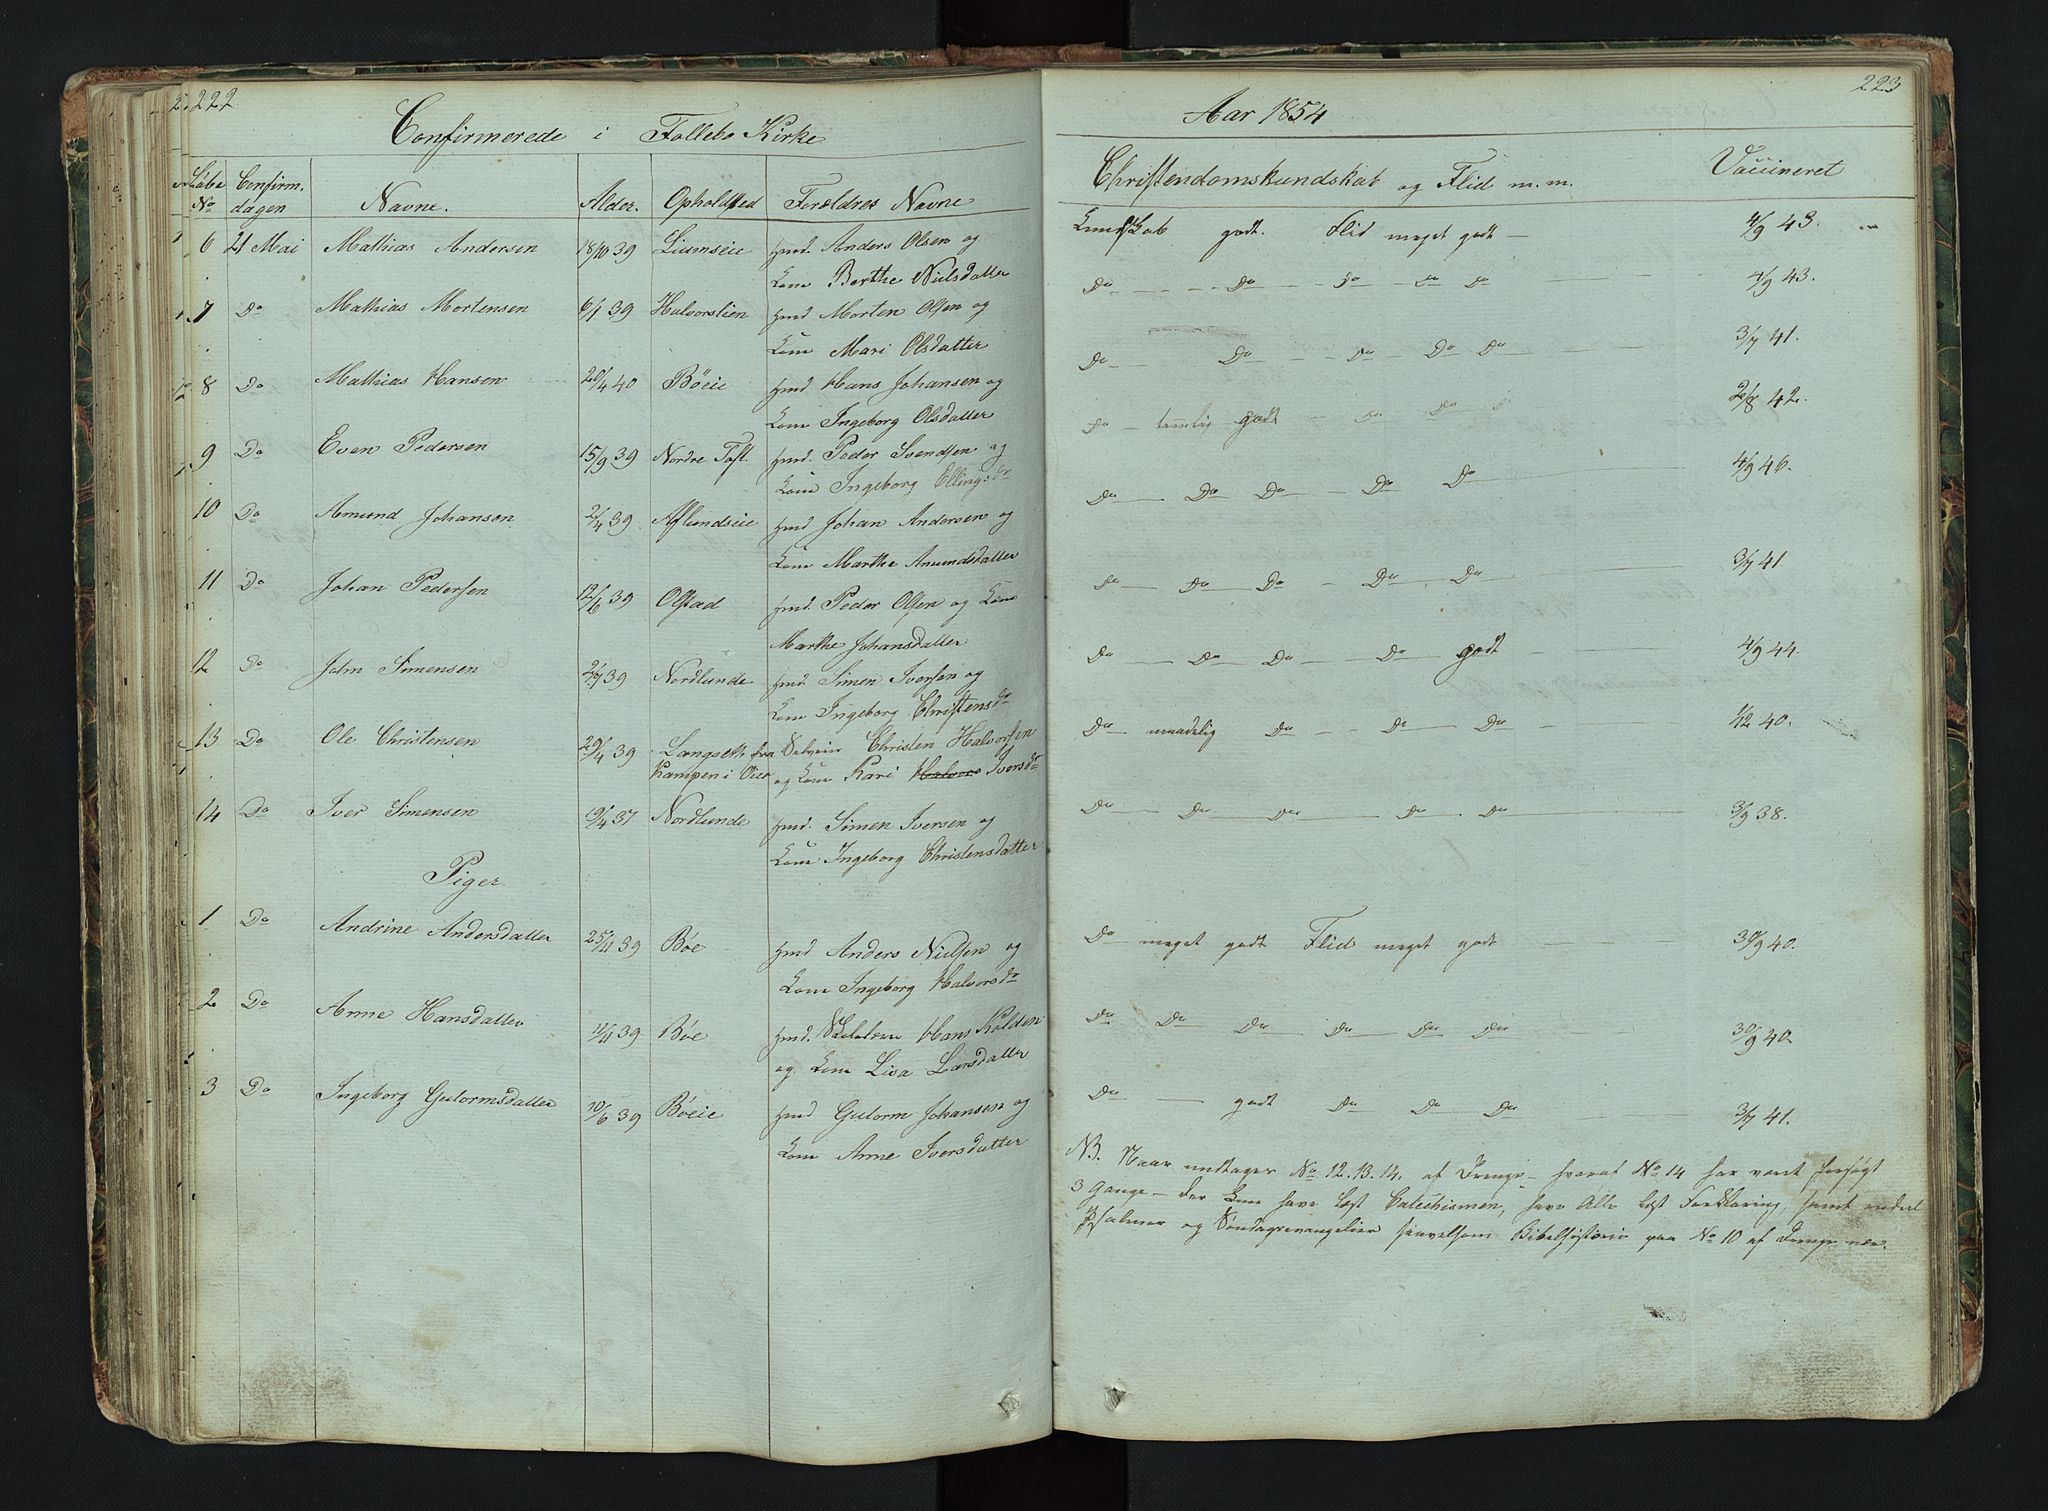 222
Confirmerede i Follebo Kirke
Løbe No Confirm. dagen Navne. Alder. Opholdsted Forældres Navne
6 21 Mai Mathias Andersen 18/10 39 Liumseie Hmd. Anders Olsen og
Kone Berthe Nielsdatter
7 Do Mathias Mortensen 6/1 39 Halvorslien Hmd Morten Olsen og
Kone Mari Olsdatter
8 Do Mathias Hansen 20/4 40 Bøeie Hmd Hans Johansen og
Kone Ingeborg Olsdatter
9 Do Even Pedersen 15/9 39 Nordre Toft. Hmd. Peder Svendsen og
Kone Ingeborg Ellingsdr
10 Do Amund Johansen 2/4 39 Aflundseie Hmd Johan Andersen og
Kone Marthe Amundsdatter
11 Do Johan Pedersen 12/6 39 Olstad Hmd. Peder Olsen og Kone
Marthe Johansdatter
12 Do John Simensen 39 Nordlunde Hmd. Simen Iversen og
Kone Ingeborg Christensdr
13 Do Ole Christensen 29/4 39 Langseth fra Selveier Christen Halvorsen
Kampen i Øier og Kone Kari Halvors Iversdr
14 Do Iver Simensen 19/4 37 Nordlunde Hmd. Simen Iversen og
Kone Ingeborg Christensdatter
Piger
1 Do Andrine Andersdatter 25/11 39 Bøe Hmd Anders Nielsen og
Kone Ingeborg Halvorsdr
2 Do Anne Hansdatter 11/11 39 Bøe Hmd. Hans Kolden
og Kone Lisa Larsdatter
3 Do Ingeborg Gulormsdatter 10/6 39 Bøeie Hmd Gulorm Johansen og
Kone Anne Iversdatter
223
Aar 1854
Christendomskundskab og Flid m. m. Vaccineret
Kundskab godt. Flid meget godt — 4/9 43.
Do Do Do Do Do 4/9 43.
Do Do Do Do Do 3/7 41.
Do temlig godt Do Do 2/8 42.
Do Do Do Do Do 4/9 46.
Do Do Do Do Do 3/7 41.
Do Do Do Do godt 4/9 44.
Do maadelig Do Do Do 1/12 40.
Do Do Do Do Do 3/9 38.
Do meget godt Flid meget godt 30/9 40.
Do Do Do Do Do Do 30/9 40.
Do godt Do Do Do 3/7 41.
NB. Naar undtages No 12. 13. 14. af Drenge – hvoraf No 14 har været forsøgt
3 Gange – der kun have læst Catechismen, have Alle læst Forklaring, samt endel
Psalmer og Søndagsevangelier saavelsom Bibelhistorie paa No 10 af Drenge nær.